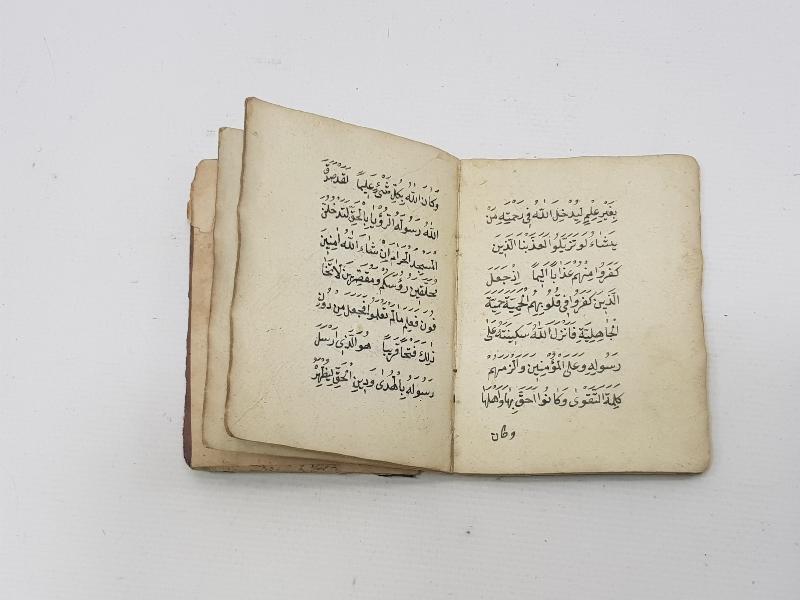 بِغَيْرِ عِلْمٍ لِيُدْخِلَ اللهُ فِي رَحْمَتِهِ مَنْ
يَشَاءُ لَوْ تَزَيَّلُوا لَعَذَّبْنَا الَّذِينَ
كَفَرُوا مِنْهُمْ عَذَابًا اَلِيمًا اِذْ جَعَلَ
الَّذِينَ كَفَرُوا فِي قُلُوبِهِمُ الْحَمِيَّةَ حَمِيَّةَ
الْجَاهِلِيَّةِ فَاَنْزَلَ اللهُ سَكِينَتَهُ عَلَى
رَسُولِهِ وَعَلَى الْمُؤْمِنِينَ وَاَلْزَمَهُمْ
كَلِمَةَ التَّقْوَى وَكَانُوا اَحَقَّ بِهَا وَاَهْلَهَا
وكان
وَكَانَ اللهُ بِكُلِّ شَيْءٍ عَلِيمًا لَقَدْ صَدَقَ
اللهُ رَسُولَهُ الرُّؤْيَا بِالْحَقِّ لَتَدْخُلُنَّ
الْمَسْجِدَ الْحَرَامَ اِنْ شَاءَ اللهُ اٰمِنِينَ
مُحَلِّقِينَ رُؤُسَكُمْ وَمُقَصِّرِينَ لَا تَخَا
فُونَ فَعَلِمَ مَا لَمْ تَعْلَمُوا فَجَعَلَ مِنْ دُونِ
ذٰلِكَ فَتْحًا قَرِيبًا هُوَ الَّذِي اَرْسَلَ
رَسُولَهُ بِالْهُدٰى وَدِينِ الْحَقِّ لِيُظْهِرَهُ